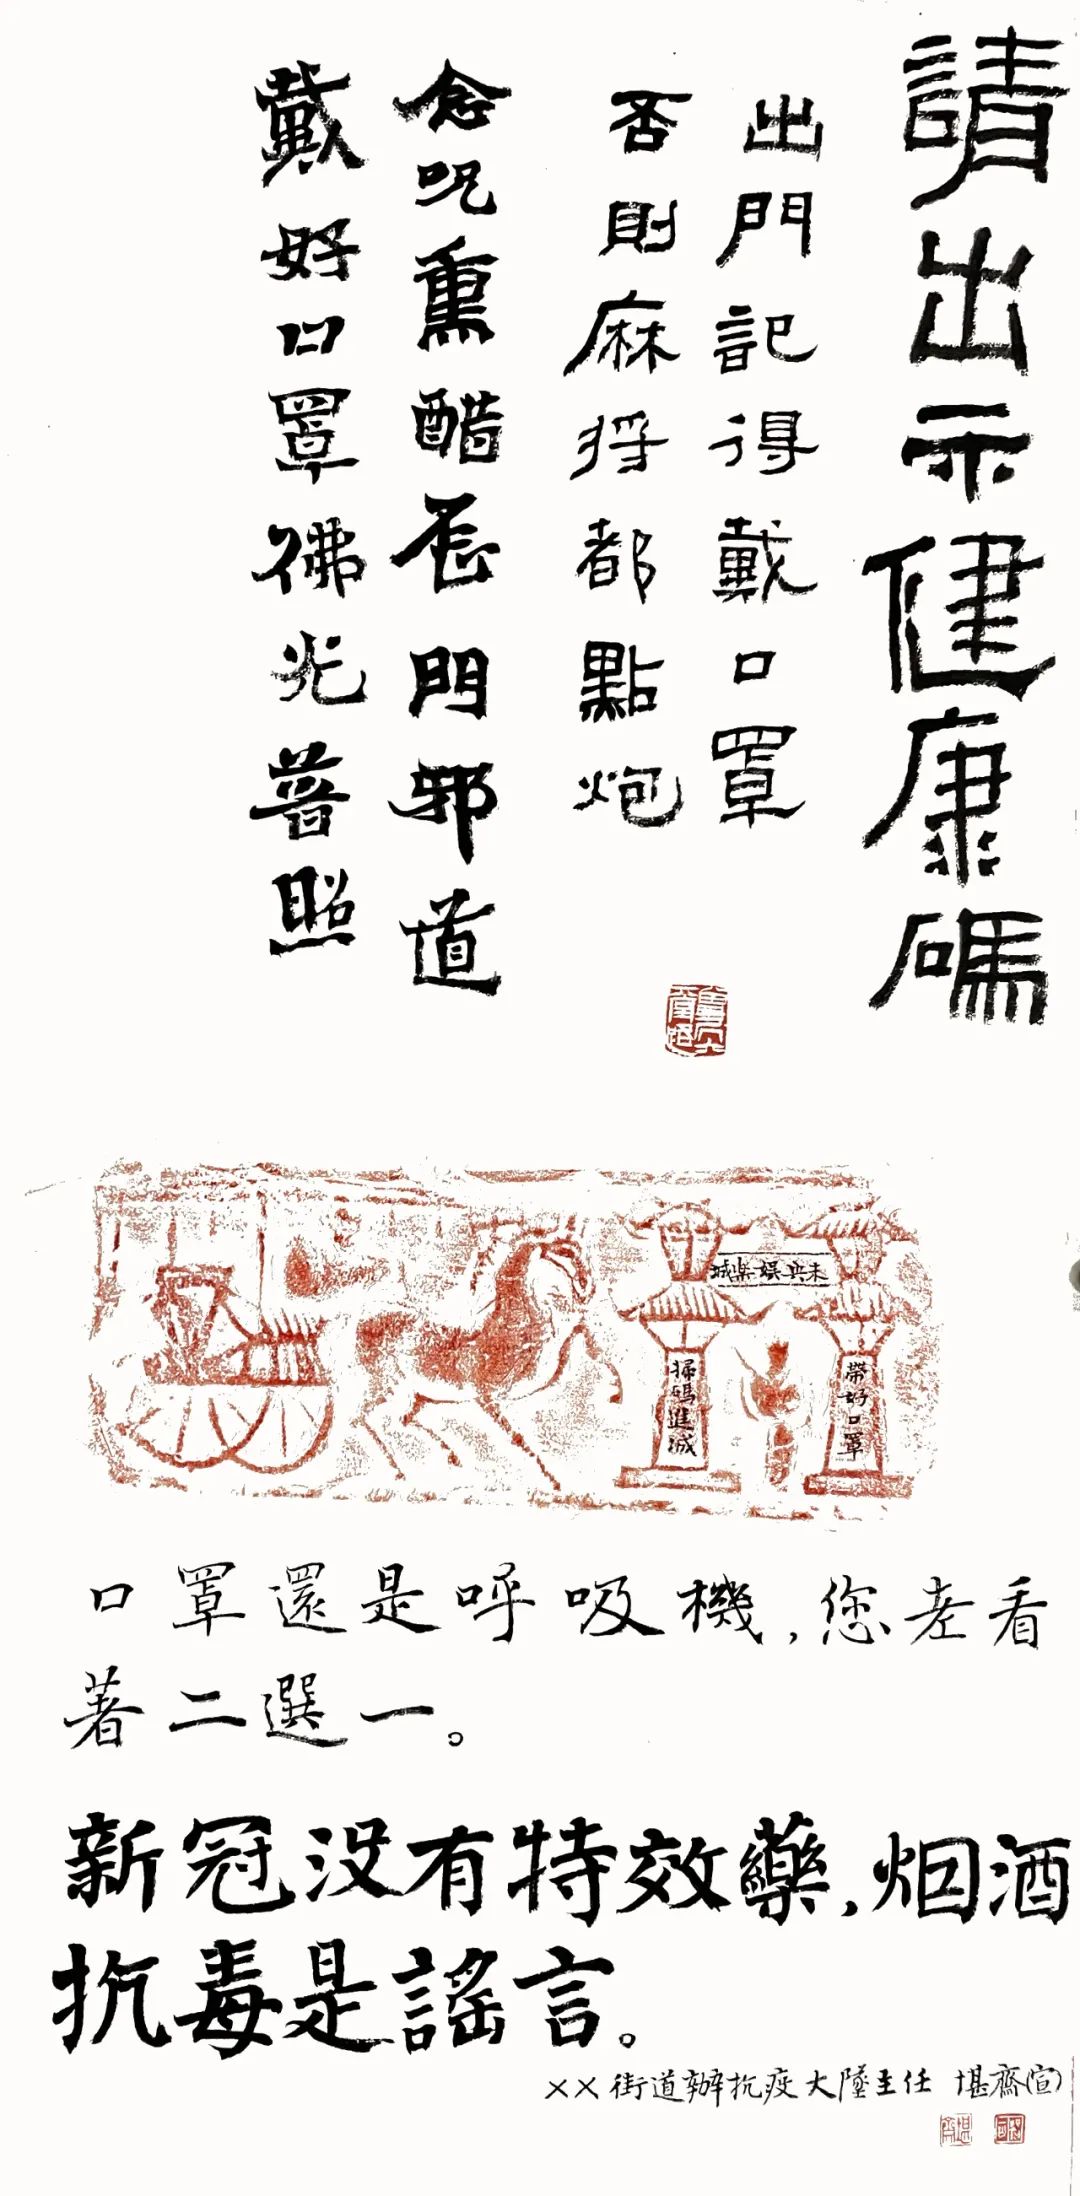 請出示健康碼
出門記得戴口罩
否則麻將都點炮
念咒熏醋歪門邪道
戴好口罩佛光普照
未央娱樂城
帶好口罩
掃碼進城
口罩還是呼吸機，您老看
著二選一。
新冠没有特效藥，烟酒
抗毒是謠言。
××街道辦抗疫大隊主任 堪齋(宣)
堪齋